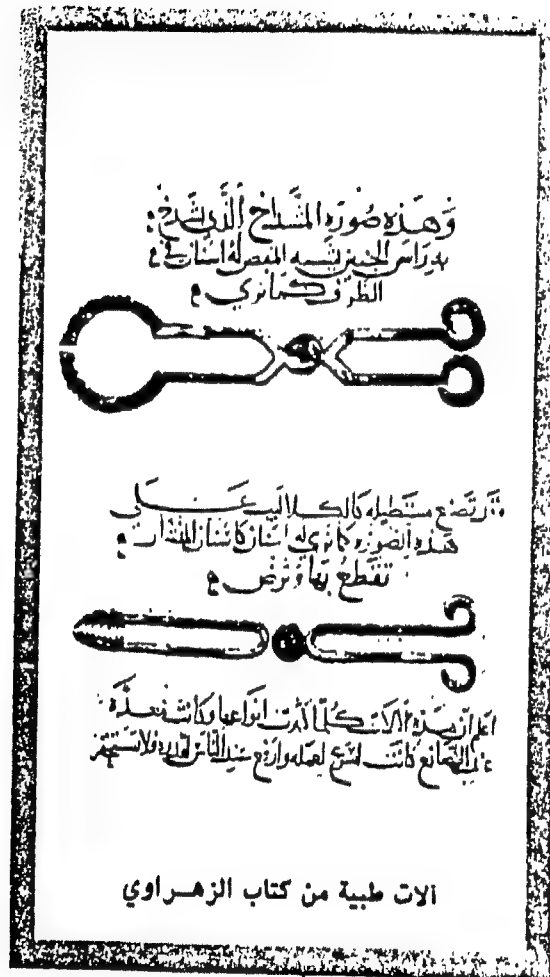 وهذه صورة المشداخ الذي يشدخ
به راس الجنين يشبه المقص له اسنان في
الطرف كما تري
وقد تصنع مستطيله كالكلاليب علـــي
هذه الصورة كما تري له اسنان كاسنان المنشار
تقطع بها وترض
اعلم ان هذه الالات كلما كثرت انواعها وكانت معدة
الصانع كانت اسرع لعمله وارفع عند الناس لقدره فلا تستحقر
آلات طبية من كتاب الزهــراوي